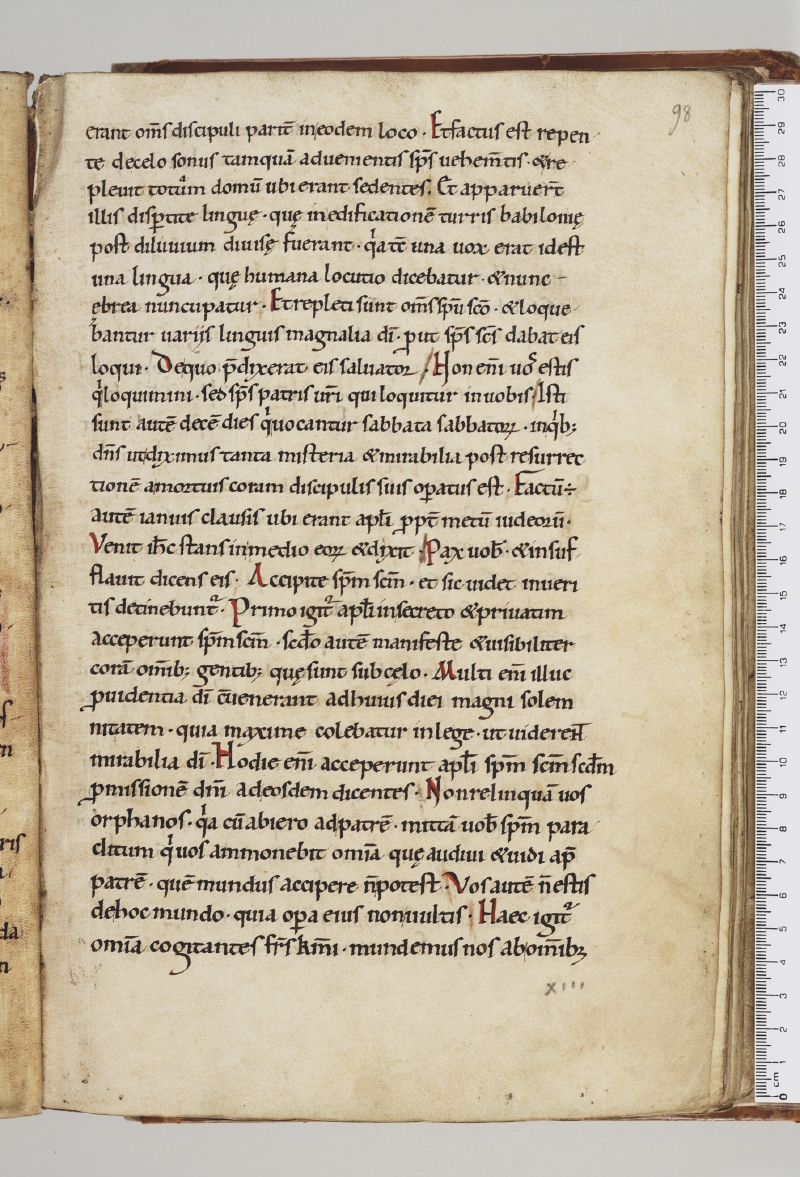 98
erant om̄s discipuli parit̄ ineodem loco · Et factus est repen
te decelo sonus tamquā aduenientis sp̄s uehem̄tis · & re
pleuit totum domū ubi erant sedentes. Et apparuer̄t
illis disp̄tite linguę · quę inedificationē turris babilonię
post diluuium diuisę fuerant · q̄a tc̄ una uox erat idest
una lingua · quę humana locutio dicebatur · & nunc
ebrea nuncupatur · Et repleti sunt om̄s sp̄u sc̄o · & loque
bantur uarijs linguis magnalia dī · put sp̄s sc̄s dabat eis
loqui · De quo p̄dixerat eis saluator · Non eni̅ uos estis
q̄ loquimini · sed sp̄s patris ur̄i qui loquitur in uobis · Isti
sunt autē decē dies q̄ uocantur sabbata sabbatoꝝ · inq̄b;
dn̄s ut diximus tanta misteria & mirabilia post resurrec
tionē amortuis coram discipulis suis oꝑatus est · Factū ÷
autē ianuis clausis ubi erant apl̄i ꝓpt̄ metū iudeorū ·
Venit ih̄c stans in medio eoꝝ & dixit · Pax uob̄ · & insuf
flauit dicens eis · Accipite sp̄m sc̄m · et sic uidet inueri
tis detinebunt̄ · Primo igit̄ apl̄i insecreto & priuatim
acceperunt sp̄m sc̄m · sc̄do autē manifeste & uisibiliter
corā omīb; gentib; quę sunt sub celo · Multi eni̅ illuc
ꝓuidentia dī c̄uenerant ad huius diei magni solem
nitatem · quia maxime colebatur in lege · ut uiderent
mirabilia dī · Hodie eni̅ acceperunt apl̄i sp̄m sc̄m sc̄dm
ꝓmissionē dn̄i adeosdem dicentes · Non relinquā uos
orphanos · q̄a cū abiero ad patrē · mittā uob̄ sp̄m para
clitum q̄ uos ammonebit omīa quę audiui & uidi ap̄
patrē · quē mundus accipere n̄ potest · Vos autē n̄ estis
de hoc mundo · quia oꝑa eius non uultis · Haec igit̄
omīa cogitantes fr̄s km̄i · mundemus nos abomīb;
XIII